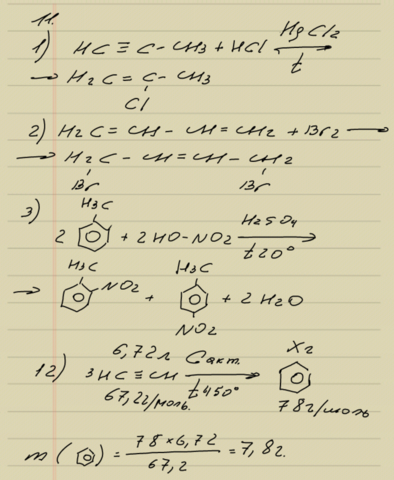 11.
1) HC ≡ C - CH3 + HCl HgCl2
t
→ H2C = C - CH3
Cl
2) H2C = CH - CH = CH2 + Br2 →
→ H2C - CH = CH - CH2
Br Br
3) H3C
2 + 2HO-NO2 H2SO4
t20°
→ H3C NO2 + H3C + 2H2O
NO2
12) 6,72л Cакт. Xг
3HC ≡ CH
67,2г/моль. t450° 78г/моль
m ( ) = 78×6,72 / 67,2 = 7,8г.